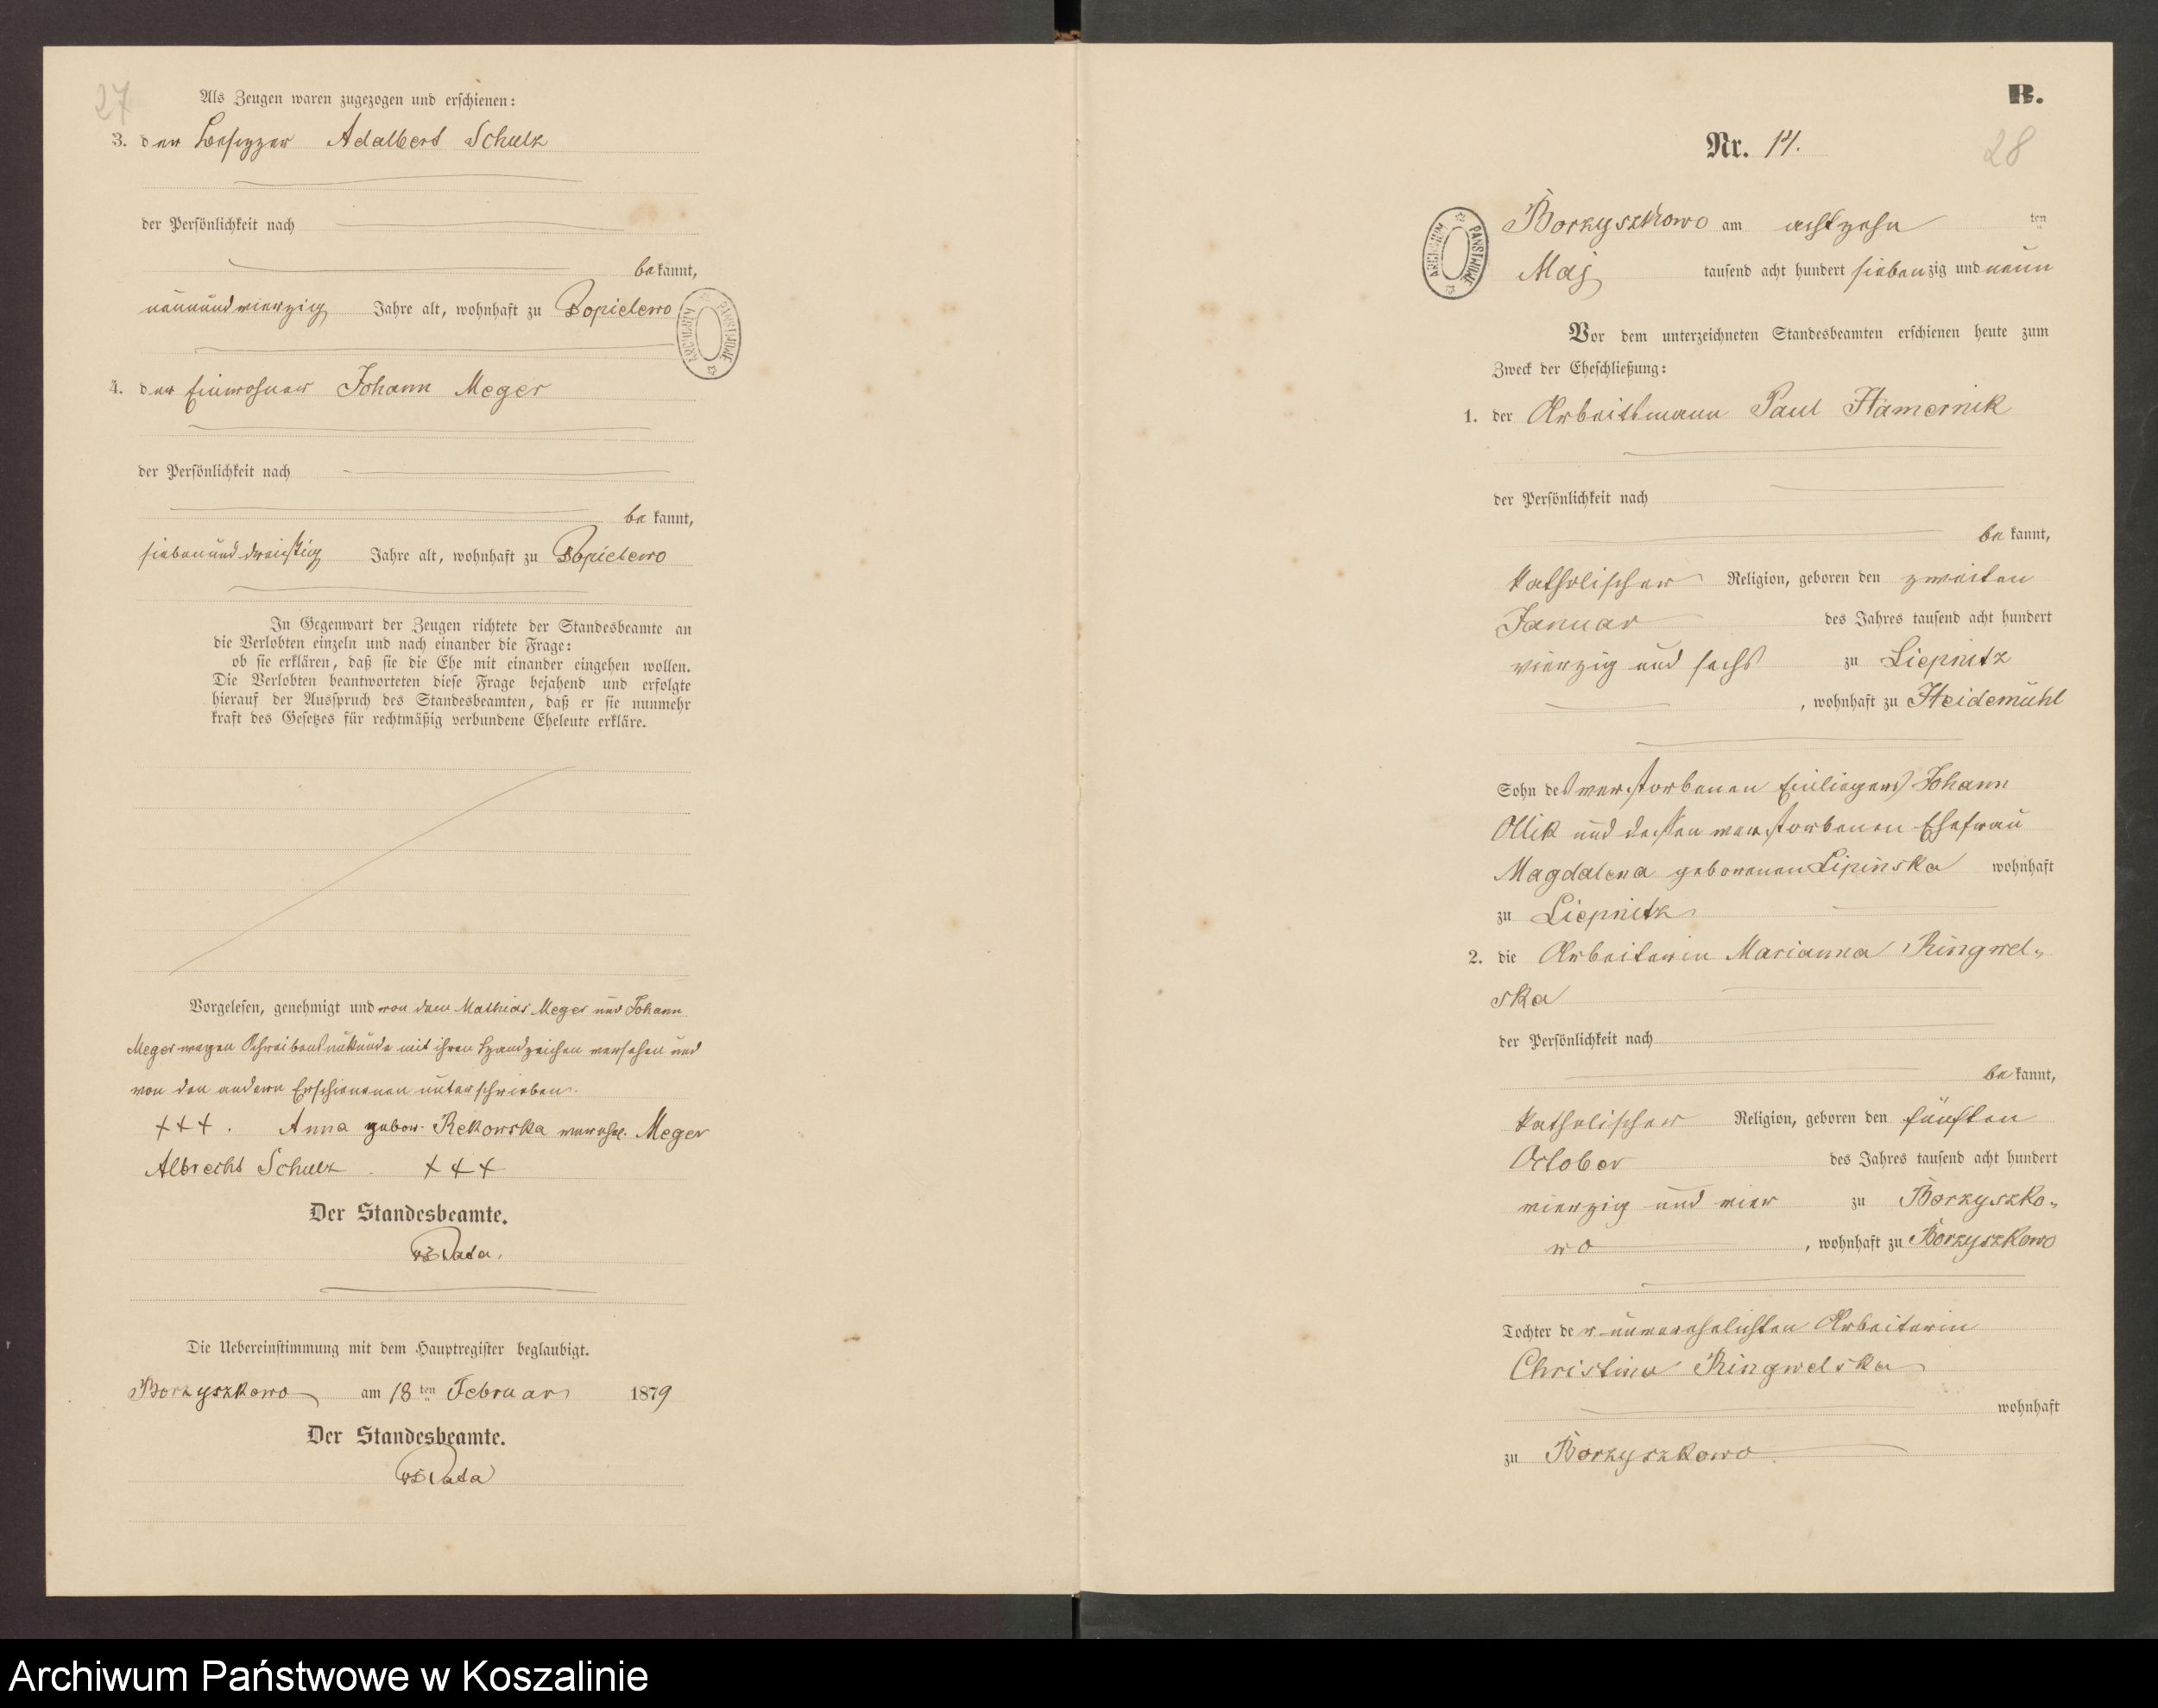 27
Als Zeugen waren zugezogen und erschienen:
3. der Besitzer Adalbert Schulz
der Persönlichkeit nach
bekannt,
neunundvierzig Jahre alt, wohnhaft zu Popielewo
4. der Einwohner Johann Meger
der Persönlichkeit nach
bekannt,
siebenunddreißig Jahre alt, wohnhaft zu Popielewo
In Gegenwart der Zeugen richtete der Standesbeamte an
die Verlobten einzeln und nach einander die Frage:
ob sie erklären, daß sie die Ehe mit einander eingehen wollen.
Die Verlobten beantworteten diese Frage bejahend und erfolgte
hierauf der Ausspruch des Standesbeamten, daß er sie nunmehr
kraft des Gesetzes für rechtmäßig verbundene Eheleute erkläre.
Vorgelesen, genehmigt und von dem Mathias Meger und Johann
Meger wegen Schreibensunkunde mit ihren Handzeichen versehen und
von den andern Erschienenen unterschrieben.
+++. Anna gebor. Rekowska verehl. Meger
Albrecht Schulz. +++
Der Standesbeamte.
Die Uebereinstimmung mit dem Hauptregister beglaubigt.
Borzyszkowo am 18ten Februar 1879
Der Standesbeamte.
B.
Nr. 14.
28
Borzyszkowo am achtzehn ten
Maj tausend acht hundert siebenzig und neun
Vor dem unterzeichneten Standesbeamten erschienen heute zum
Zweck der Eheschließung:
1. der Arbeitsmann Paul Hamernik
der Persönlichkeit nach
bekannt,
katholischer Religion, geboren den zweiten
Januar des Jahres tausend acht hundert
vierzig und sechs zu Liepnitz
, wohnhaft zu Heidemühl
Sohn des verstorbenen Einliegers Johann
Ollik und dessen verstorbenen Ehefrau
Magdalena geborenen Lipinska wohnhaft
zu Liepnitz
2. die Arbeiterin Marianna Ringwel-
ska
der Persönlichkeit nach
bekannt,
katholischer Religion, geboren den fünften
October des Jahres tausend acht hundert
vierzig und vier zu Borzyszko-
wo , wohnhaft zu Borzyszkowo
Tochter der unverehelichten Arbeiterin
Christina Ringwelska
wohnhaft
zu Borzyszkowo
ARCHIWUM PAŃSTWOWE
ARCHIWUM PAŃSTWOWE
Archiwum Państwowe w Koszalinie